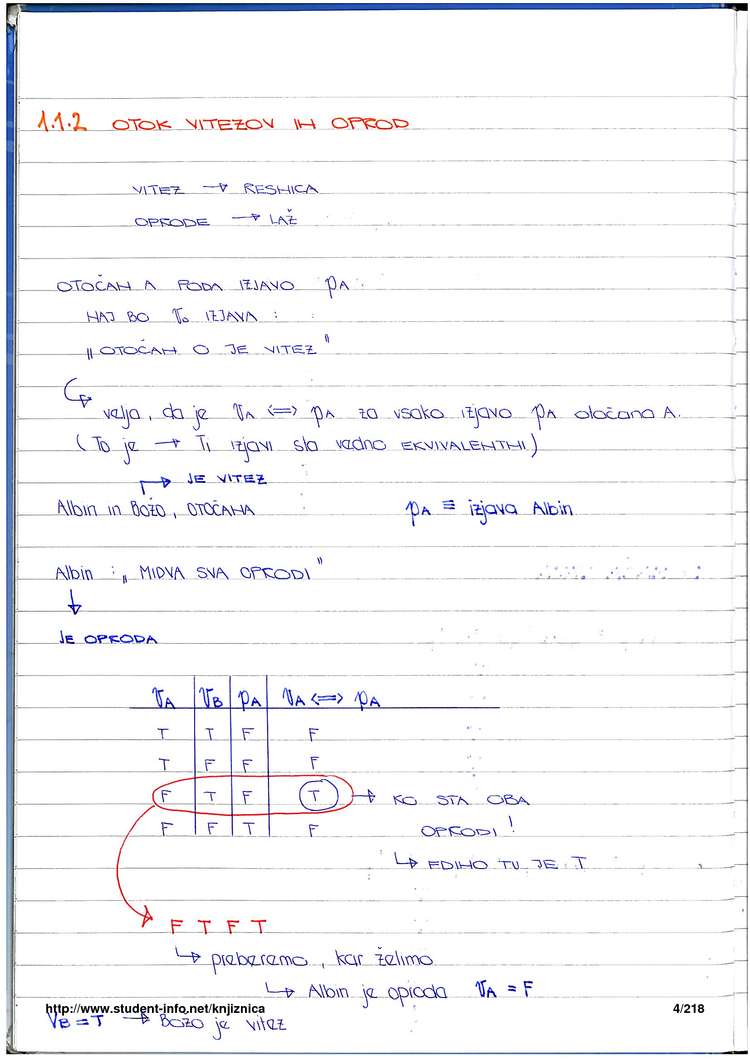 1.1.2 OTOK VITEZOV IN OPROD
VITEZ → RESNICA
OPRODE → LAŽ
OTOČAN A PODA IZJAVO pA.
NAJ BO Vo IZJAVA :
„OTOČAN O JE VITEZ"
↳ velja, da je VA <=> pA za vsako izjavo pA otočana A.
(To je → Ti izjavi sta vedno EKVIVALENTNI)
↱ JE VITEZ
Albin in BOŽO, OTOČANA pA ≡ izjava Albin
Albin : „MIDVA SVA OPRODI"
↓
JE OPRODA
VA VB pA VA <=> pA
T T F F
T F F F
F T F T → KO STA OBA
F F T F OPRODI!
↳ EDINO TU JE T
F T F T
↳ preberemo, kar želimo
↳ Albin je oproda VA = F
http://www.student-info.net/knjiznica 4/218
VB = T → Božo je vitez